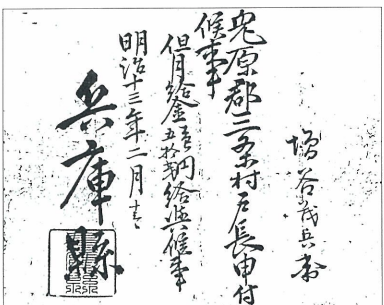 増谷茂兵衛
兎原郡三条村戸長申付
候事
但月給金壱円
五拾銭給与候事
明治十三年二月
兵庫縣